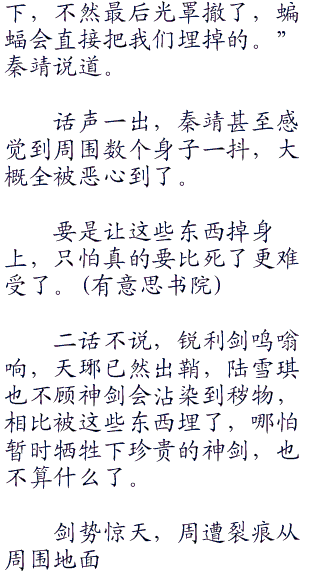 下，不然最后光罩撤了，蝙
蝠会直接把我们埋掉的。”
秦靖说道。
话声一出，秦靖甚至感
觉到周围数个身子一抖，大
概全被恶心到了。
要是让这些东西掉身
上，只怕真的要比死了更难
受了。(有意思书院)
二话不说，锐利剑鸣嗡
响，天琊已然出鞘，陆雪琪
也不顾神剑会沾染到秽物，
相比被这些东西埋了，哪怕
暂时牺牲下珍贵的神剑，也
不算什么了。
剑势惊天，周遭裂痕从
周围地面